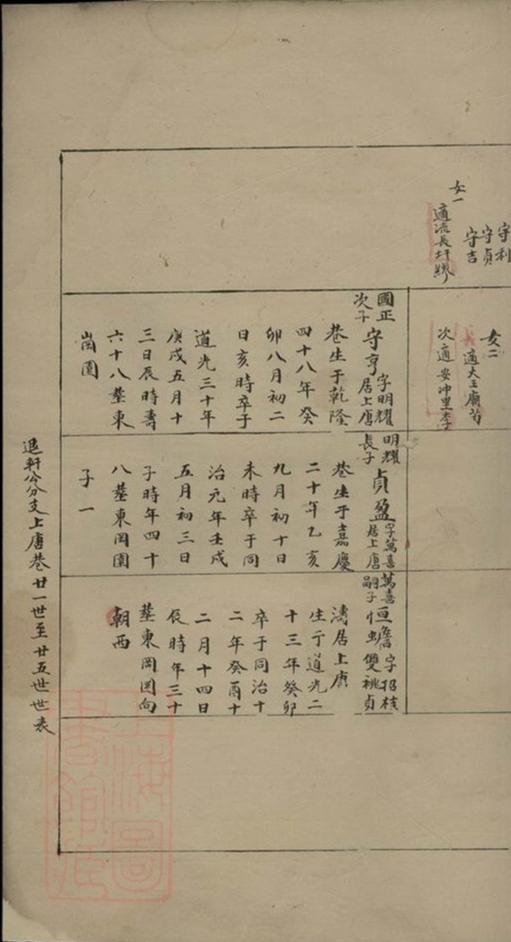 守利
守貞
守吉
女一
適流長圩繆
女二
長適大王廟苟
次適安沖里李
國正
次子
守亨
字明耀
居上唐
巷生于乾隆
四十八年癸
卯八月初二
日亥時卒于
道光三十年
庚戌五月十
三日辰時壽
六十八塟東
崗圍
明耀
長子
貞盈
字萬喜
居上唐
巷生于嘉慶
二十年乙亥
九月初十日
未時卒于同
治元年壬戌
五月初三日
子時年四十
八塟東岡圍
子一
萬喜
嗣子
亘詹字招枝
雙祧貞
濤居上唐
生于道光二
十三年癸卯
卒于同治十
二年癸酉十
二月十四日
辰時年三十
塟東岡圍向
朝西
退軒公分支上唐巷廿一世至廿五世世表
上海圖書館藏